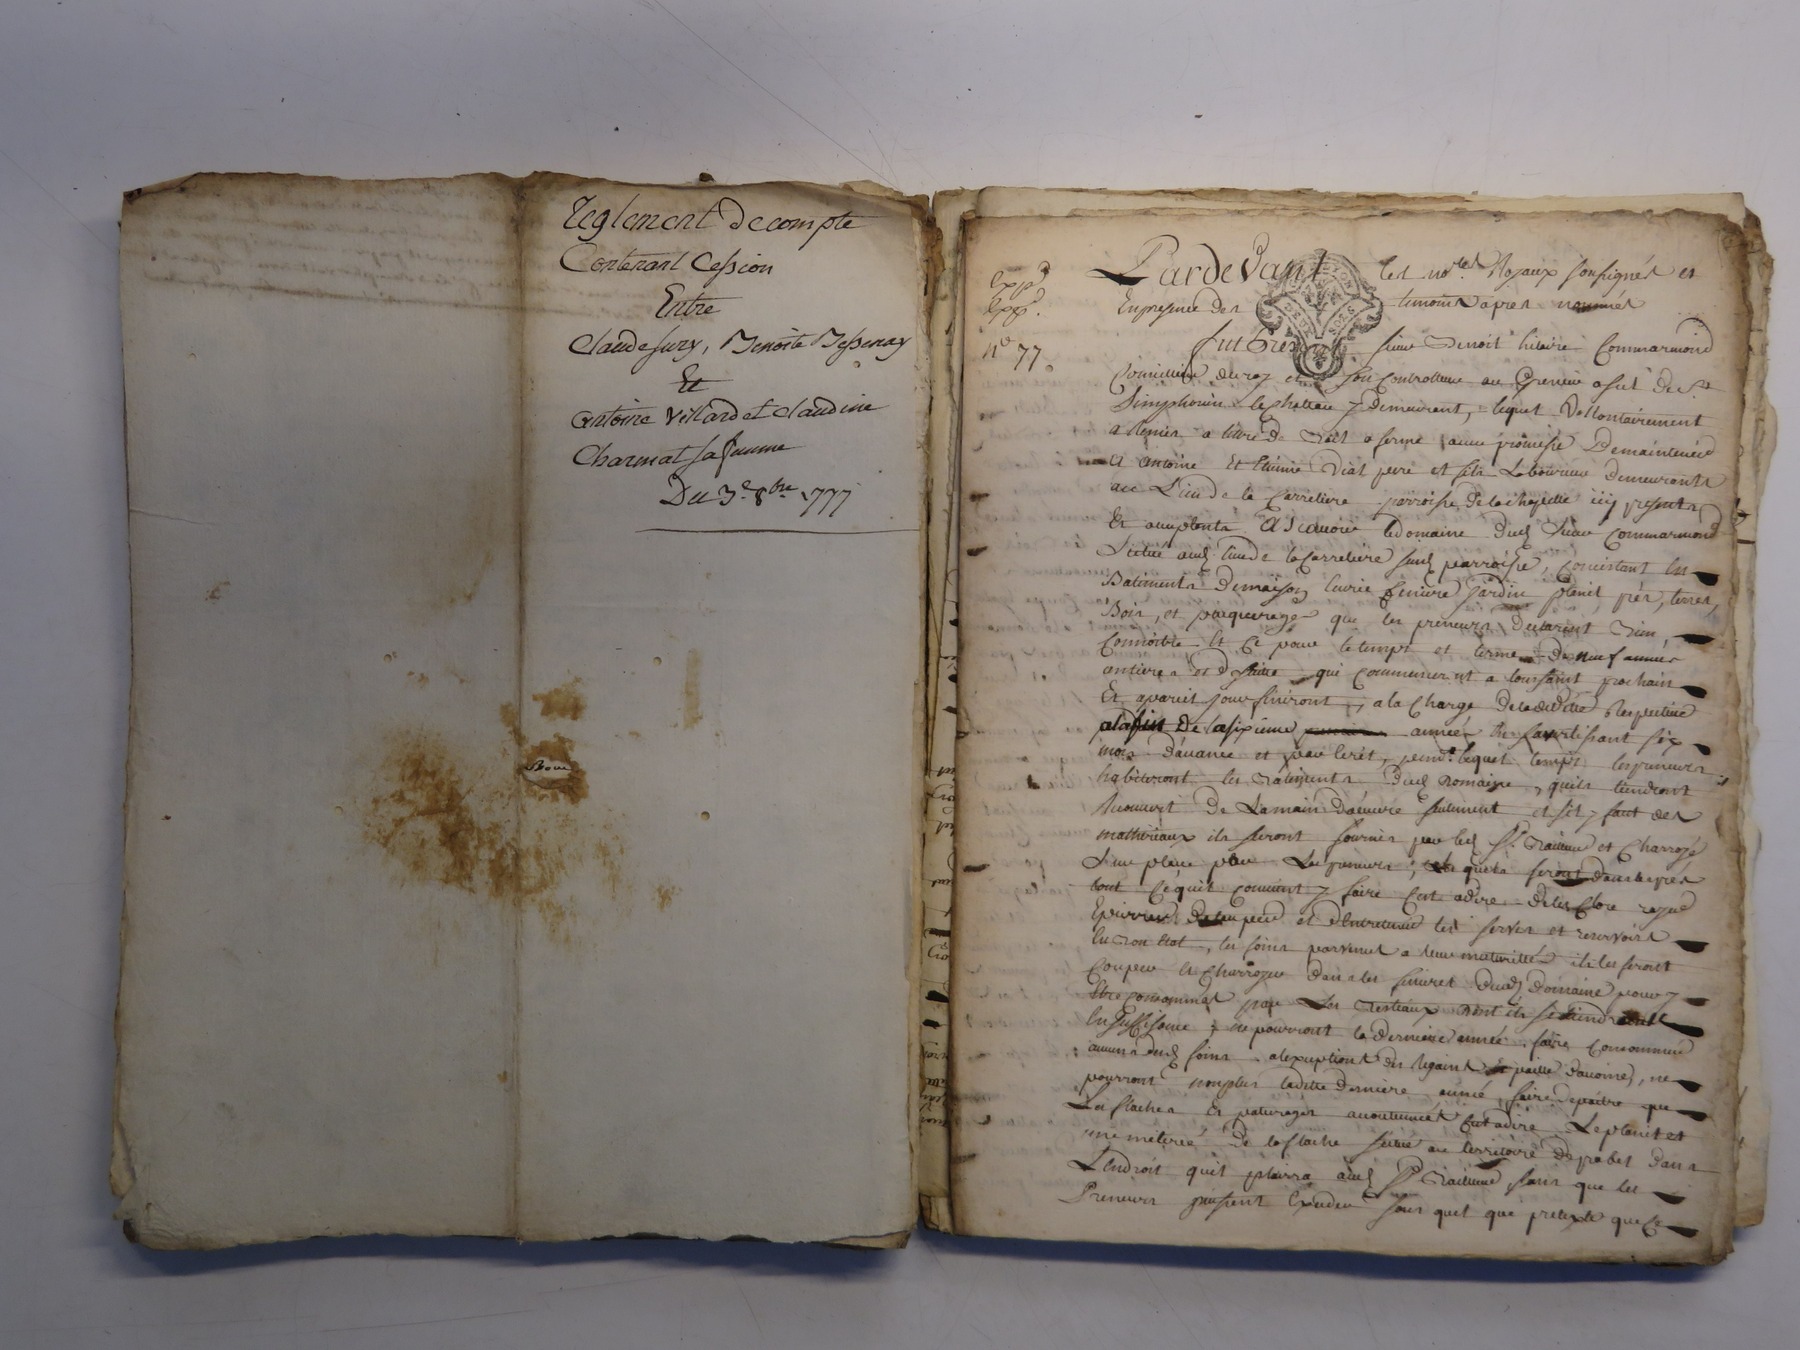 Reglement de compte
Contenant Cession
Entre
Claude Jury, Benoite Bessenay
Et
Antoine Villard et Claudine
Charmat sa femme
Du 3e 8bre 1777
exp.d
exp.
n° 77.
Pardevant les no.res Royaux soussignés et
En presence des temoins apres nommés
fut Pres sieur Benoit hilaire Commarmond
Conseiller du roy et son controlleur au Grenier a sel de St
Simphorien le chateau y demeurant, lequel Vollontairement
a titre de Bail a ferme avec promesse De maintenir
a antoine Et Etienne Vial pere et fils Laboureurs demeurants
au Lieu de la Carreliere parroisse de la chapelle icy presents
Et acceptants A Scavoir le domaine dud. sieur Commarmond
Situé aud. lieu de la Carreliere susd. parroisse, Consistant En
Batiments De maison Curie feniere jardin plenit, prés, terres,
Bois, et paquerage que les preneurs declarent Bien
Connoitre Et Ce pour le temps et terme De neuf années
entieres et de suitte qui commenceront a toussaint prochain
Et a pareil jour finiront, a la Charge
a la fin De la sixieme année En s'avertissant six
mois D'avance et par Ecrit, pend.t lequel temps les preneurs
habiteront les Batiments Dud. Domaine, qu'ils tiendront
Recouvert De La main D'oeuvre seulement et s'il y faut des
matheriaux ils seront fournis par led. Sr. Bailleur et Charroyé
sur place par Les preneurs;
tout Ce qu'il convient y faire C'est adire
et d'Entretenir les serves et reservoirs
En Bon Etat, les foins parvenus a leur maturitté ils les feront
Couper Et Charroyer dans les fenieres Dud. Domaine pour y
Etre Consommés par Les Bestiaux dont ils se tiendront
En suffisance; ne pourront la derniere année faire Consommer
aucuns dud. foins a l'exception des Regains Et paille d'avoine, ne
pourront non plus ladite derniere année faire depaitre que
Les flaches Et paturages accoutumés C'est adire Le plenit et
une meterée De la flache située au territoire dans
L'Endroit qu'il plaira aud. Sr Bailleur sans que les
Preneurs puissent Exceder sous quel que pretexte que Ce